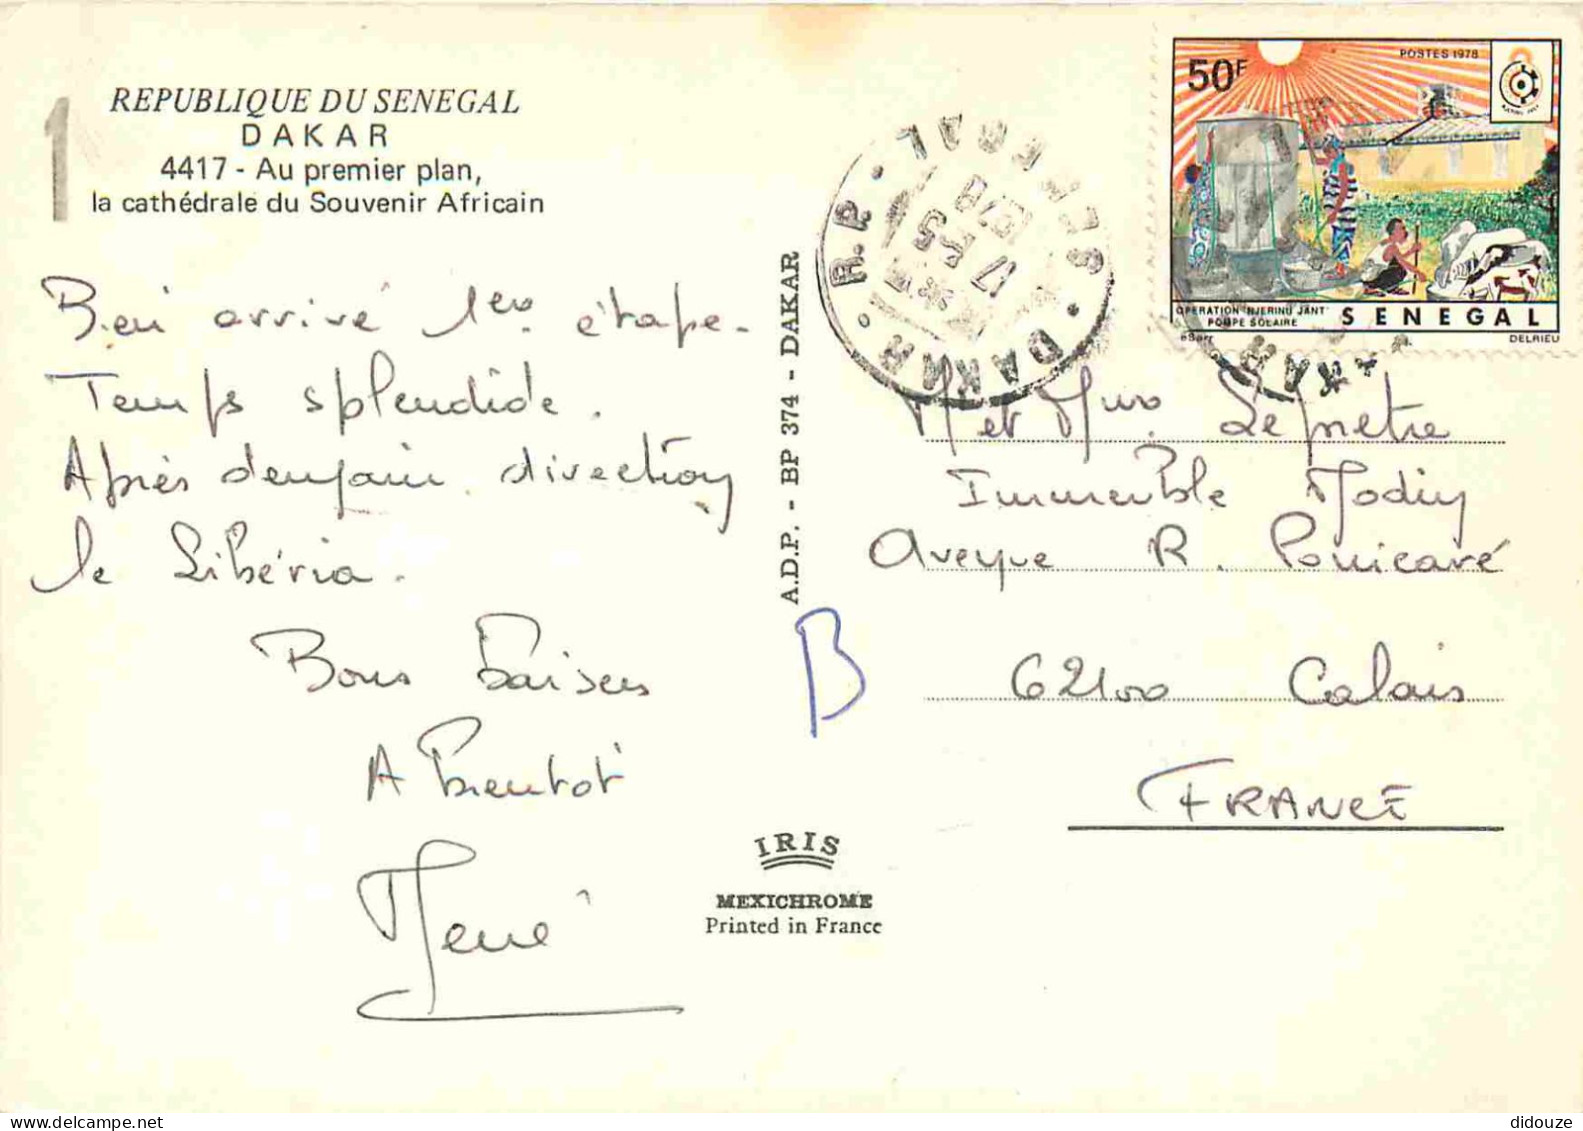 REPUBLIQUE DU SENEGAL
DAKAR
4417 - Au premier plan,
la cathédrale du Souvenir Africain
Bien arrivé 1ere étape.
Temps splendide.
Après demain direction
le Libéria.
Bons Baisers
A Bientot
René
A.D.P. - BP 374 - DAKAR
IRIS
MEXICHROME
Printed in France
B
50F
POSTES 1978
OPERATION "NJERINU JANT"
POMPE SOLAIRE
SENEGAL
DELRIEU
DAKAR R.P.
SENEGAL
17
1979
M et Mme Lepretre
Immeuble Modigy
Avenue R. Poincaré
62100 Calais
FRANCE
didouze